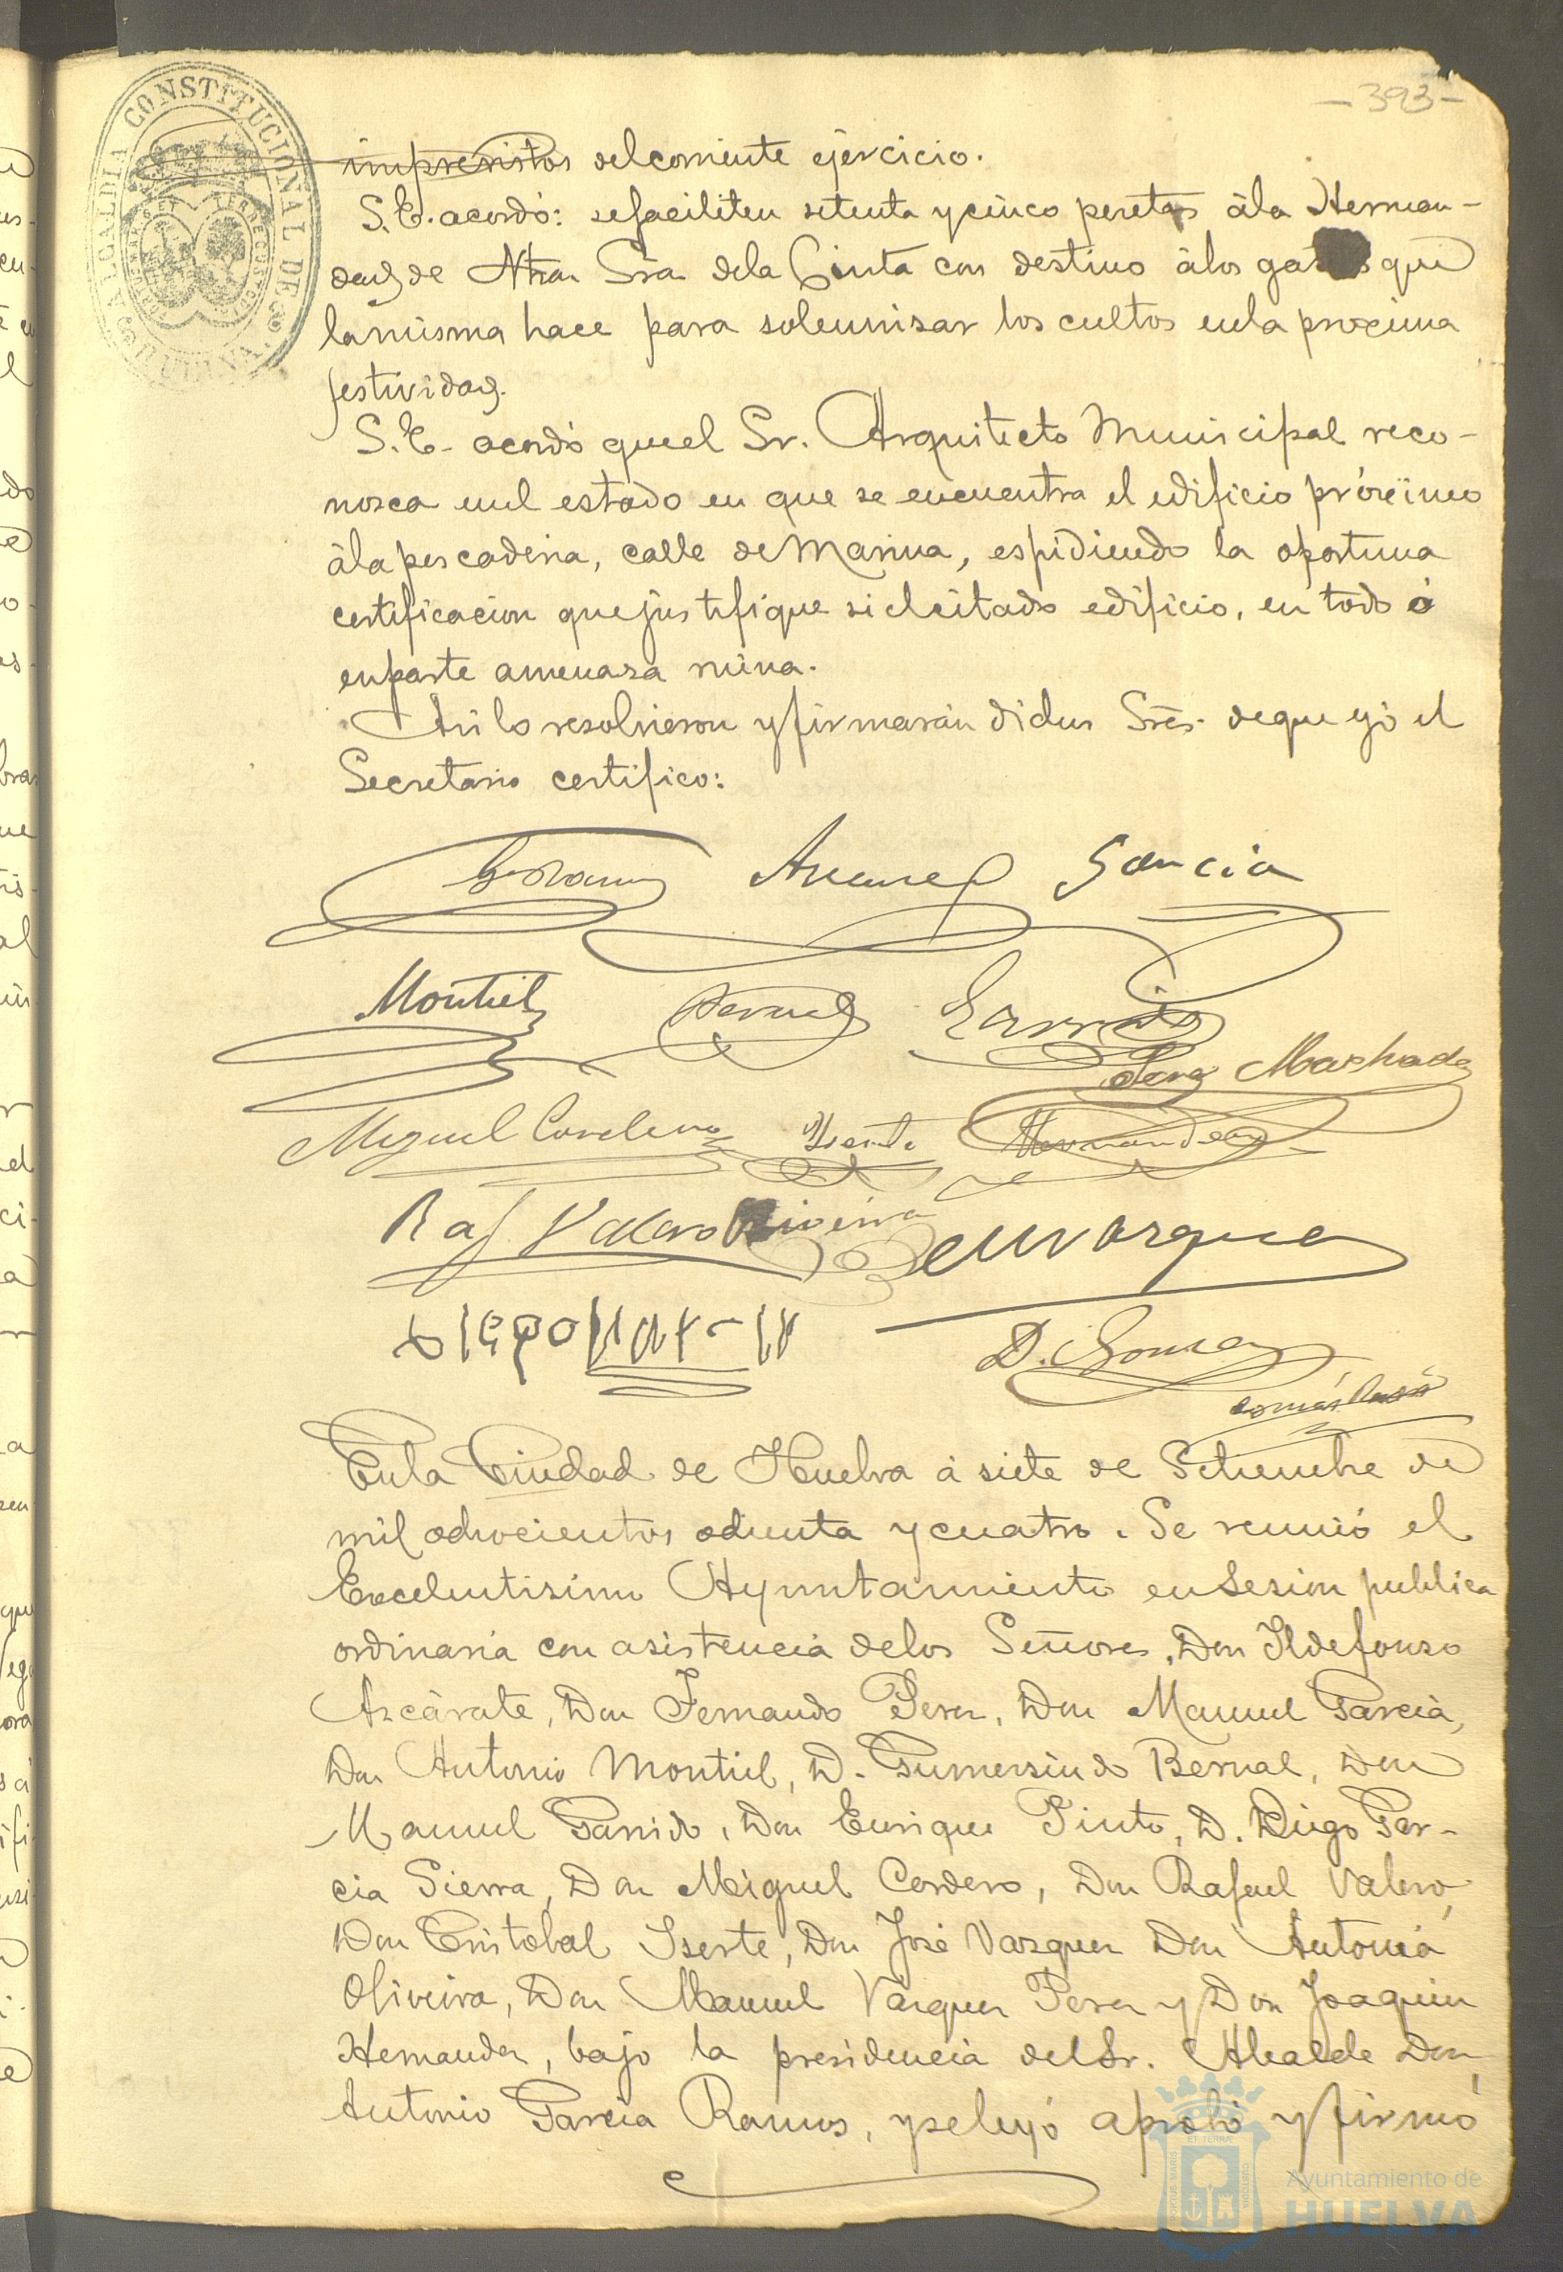 -393-
ALCALDIA CONSTITUCIONAL DE
imprevistos del corriente ejercicio.
S.E. acordó: se faciliten setenta y cinco pesetas á la Herman-
dad de Ntra Sra de la Cinta con destino á los gastos que
la misma hace para solemnisar los cultos en la proxima
festividad.
S.E. acordó que el Sr. Arquitecto Municipal reco-
nosca en el estado en que se encuentra el edificio próximo
á la pescaderia, calle de Marina, espidiendo la oportuna
certificacion que justifique si el citado edificio, en todo ó
en parte amenasa ruina.
Asi lo resolvieron y firmarán dichos Sres. de que yó el
Secretario certifico:
Garcia
Montiel Bernal Garrido
Perez Machado
Miguel Cordero Iserte Hernandez
Raf. Valero Oliveira Vazquez
Diego
D. Gomez
Tomás
En la Ciudad de Huelva á siete de Setiembre de
mil ochocientos ochenta y cuatro. Se reunió el
Excelentisimo Ayuntamiento en Sesion publica
ordinaria con asistencia de los Señores, Don Ildefonso
Azcárate, Don Fernando Perez, Don Manuel Garcia,
Don Antonio Montiel, D. Gumersindo Bernal, Don
Manuel Garrido, Don Enrique Pinto, D. Diego Gar-
cia Sierra, Don Miguel Cordero, Don Rafael Valero,
Don Cristobal Iserte, Don José Vazquez Don Antonio
Oliveira, Don Manuel Vazquez Perez y Don Joaquin
Hernandez, bajo la presidencia del Sr. Alcalde Don
Antonio Garcia Ramos, y se leyó aprobó y firmó
Ayuntamiento de
HUELVA